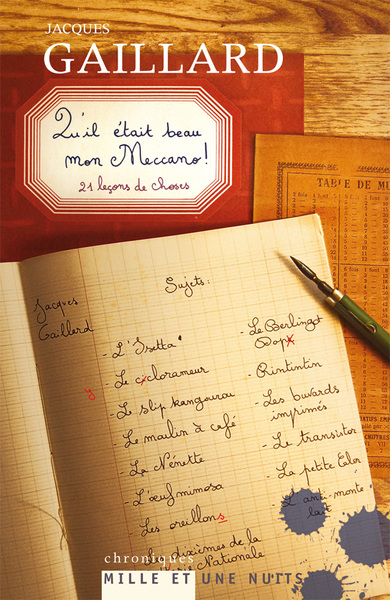 JACQUES
GAILLARD
Qu'il était beau
mon Meccano!
21 leçons de choses
TABLE DE MU
Sujets:
Jacques
Gaillard
- L'Isetta
- Le ciclorameur
y
- Le slip kangourou
Le moulin à café
- La Nénette
L'œuf mimosa
- Les oreillons
dixièmes de la
Nationale
- Le Berlingot
Dop
- Rintintin
- Les buvards
imprimés
- Le transistor
- La petite Euler
- L'anti-monte
lait
chroniques
MILLE ET UNE NUITS